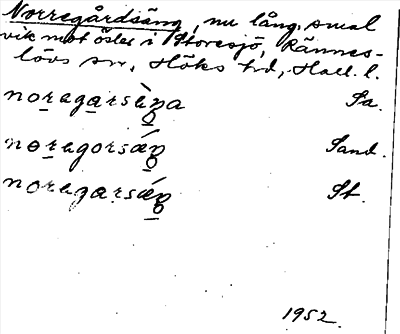 Norregårdsäng, nu lång, smal
vik mot öster i Storesjö, Rännes-
lövs sn, Höks hd, Hall. l.
noragarsèŋa Sa.
noregorsǽŋ Sand.
noregarsǽŋ St.
1952.